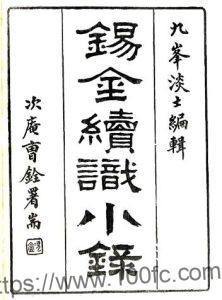 九峯淡士編輯
錫金續識小錄
次庵曹銓署耑
https://www.100fc.com